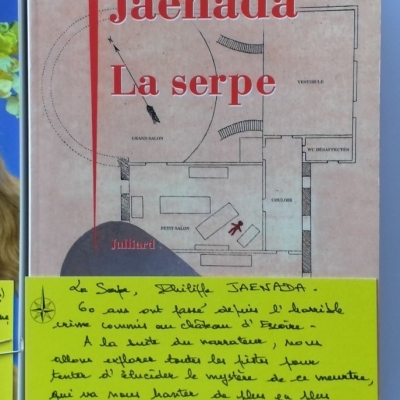 Jaenada
La serpe
VESTIBULE
GRAND SALON
WC DÉSAFFECTÉS
COULOIR
PETIT SALON
Julliard
La Serpe, Philippe JAENADA -
60 ans ont passé depuis l'horrible
crime commis au château d'Escoire -
A la suite du narrateur, nous
allons explorer toutes les pistes pour
tenter d'élucider le mystère de ce meurtre,
qui va nous hanter de plus en plus